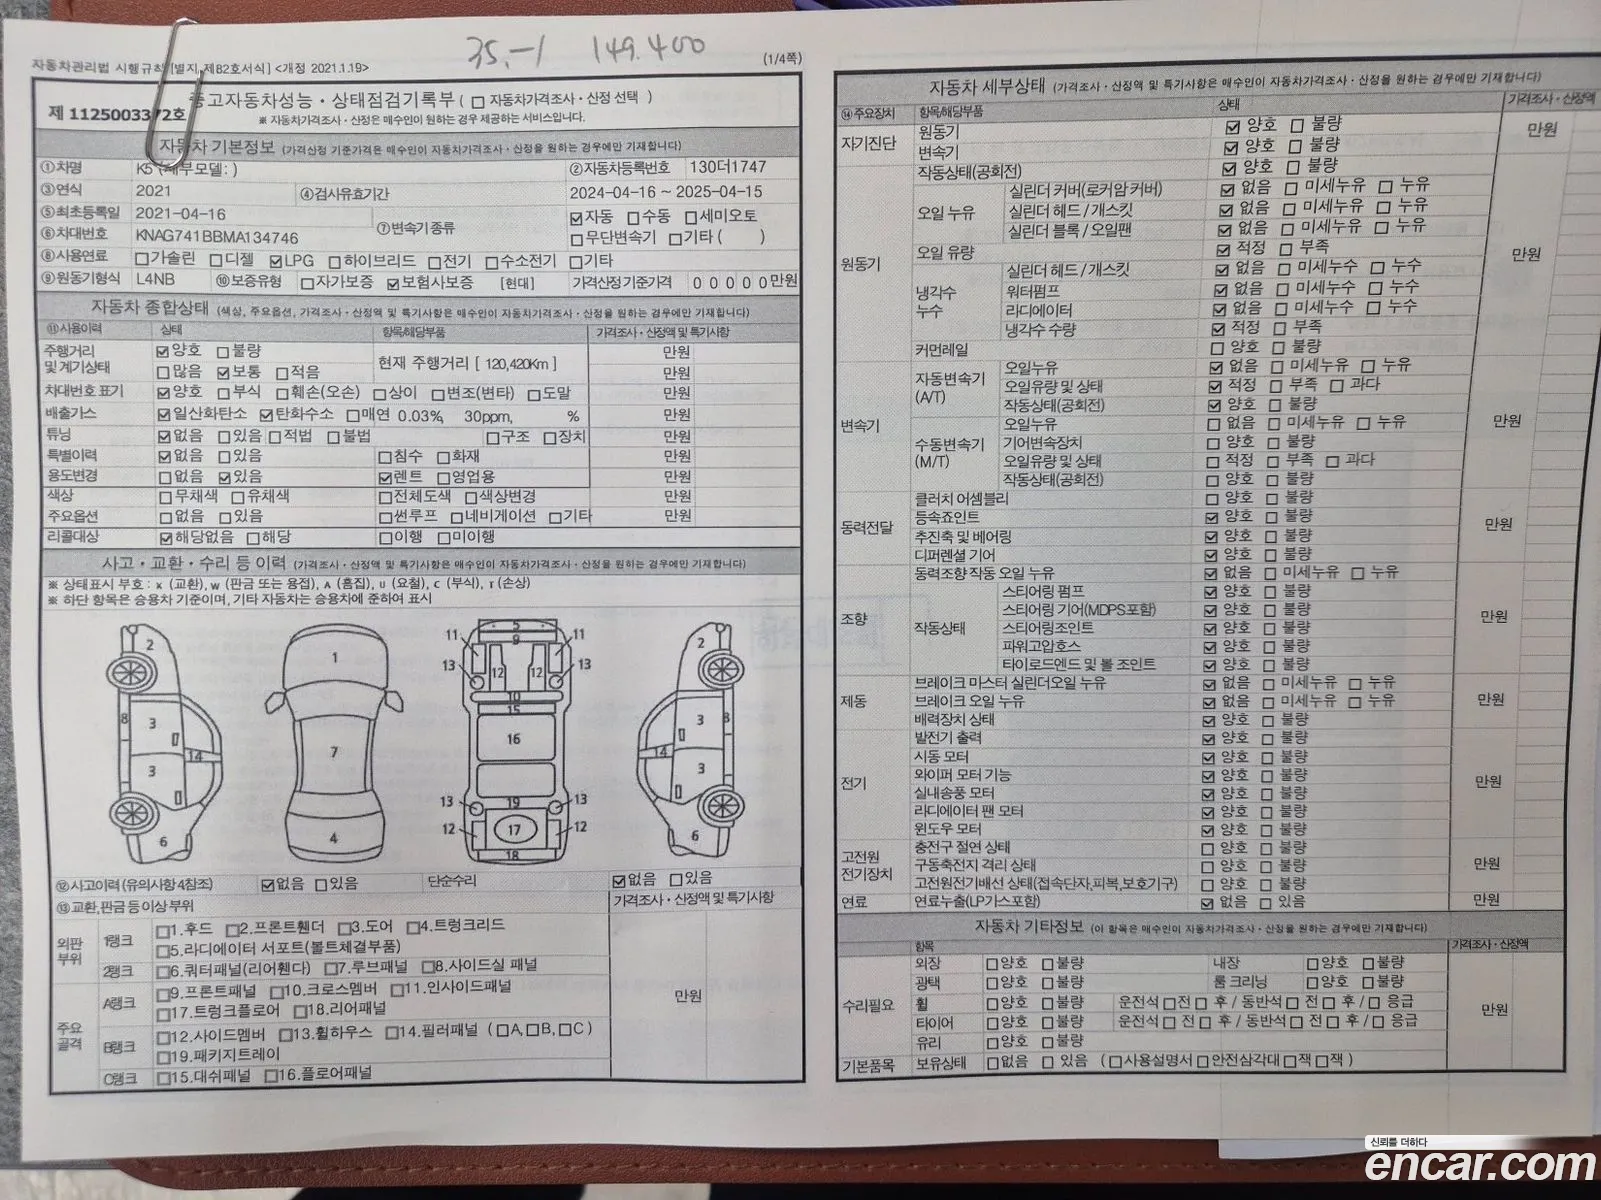 35,-1 149.400
자동차관리법 시행규칙[별지 제82호서식] <개정 2021.1.19>
(1/4쪽)
제 1125003372호
중고자동차성능·상태점검기록부 ( □ 자동차가격조사·산정 선택 )
※ 자동차가격조사·산정은 매수인이 원하는 경우 제공하는 서비스입니다.
자동차 기본정보 (가격산정 기준가격은 매수인이 자동차가격조사·산정을 원하는 경우에만 기재합니다)
①차명 K5 (세부모델: ) ②자동차등록번호 130더1747
③연식 2021 ④검사유효기간 2024-04-16 ~ 2025-04-15
⑤최초등록일 2021-04-16 ⑦변속기종류 ☑자동 □수동 □세미오토
⑥차대번호 KNAG741BBMA134746 □무단변속기 □기타 ( )
⑧사용연료 □가솔린 □디젤 ☑LPG □하이브리드 □전기 □수소전기 □기타
⑨원동기형식 L4NB ⑩보증유형 □자가보증 ☑보험사보증 [현대] 가격산정 기준가격 0 0 0 0 0 만원
자동차 종합상태 (색상, 주요옵션, 가격조사·산정액 및 특기사항은 매수인이 자동차가격조사·산정을 원하는 경우에만 기재합니다)
⑪사용이력 상태 항목/해당부품 가격조사·산정액 및 특기사항
주행거리 및 계기상태 ☑양호 □불량 현재 주행거리 [ 120,420Km ] 만원
□많음 ☑보통 □적음 만원
차대번호 표기 ☑양호 □부식 □훼손(오손) □상이 □변조(변타) □도말 만원
배출가스 ☑일산화탄소 ☑탄화수소 □매연 0.03%, 30ppm, % 만원
튜닝 ☑없음 □있음 □적법 □불법 □구조 □장치 만원
특별이력 ☑없음 □있음 □침수 □화재 만원
용도변경 □없음 ☑있음 ☑렌트 □영업용 만원
색상 □무채색 □유채색 □전체도색 □색상변경 만원
주요옵션 □없음 □있음 □썬루프 □네비게이션 □기타 만원
리콜대상 ☑해당없음 □해당 □이행 □미이행
사고·교환·수리 등 이력 (가격조사·산정액 및 특기사항은 매수인이 자동차가격조사·산정을 원하는 경우에만 기재합니다)
※ 상태표시 부호 : X (교환), W (판금 또는 용접), A (흠집), U (요철), C (부식), T (손상)
※ 하단 항목은 승용차 기준이며, 기타 자동차는 승용차에 준하여 표시
2 3 8 14 3 6
1 7 4
5 9 11 11 13 13 12 12 10 15 16 13 19 13 12 17 12 18
2 3 8 14 3 6
⑫사고이력 (유의사항 4참조) ☑없음 □있음 단순수리 ☑없음 □있음
⑬교환,판금 등 이상 부위 가격조사·산정액 및 특기사항
외판부위 1랭크 □1.후드 □2.프론트휀더 □3.도어 □4.트렁크리드
□5.라디에이터 서포트(볼트체결부품)
2랭크 □6.쿼터패널(리어휀다) □7.루브패널 □8.사이드실 패널
주요골격 A랭크 □9.프론트패널 □10.크로스멤버 □11.인사이드패널 만원
□17.트렁크플로어 □18.리어패널
B랭크 □12.사이드멤버 □13.휠하우스 □14.필러패널 ( □A, □B, □C )
□19.패키지트레이
C랭크 □15.대쉬패널 □16.플로어패널
자동차 세부상태 (가격조사·산정액 및 특기사항은 매수인이 자동차가격조사·산정을 원하는 경우에만 기재합니다)
⑭주요장치 항목/해당부품 상태 가격조사·산정액
자기진단 원동기 ☑ 양호 □ 불량 만원
변속기 ☑ 양호 □ 불량
원동기 작동상태(공회전) ☑ 양호 □ 불량 만원
오일 누유 실린더 커버(로커암 커버) ☑ 없음 □ 미세누유 □ 누유
실린더 헤드 / 개스킷 ☑ 없음 □ 미세누유 □ 누유
실린더 블록 / 오일팬 ☑ 없음 □ 미세누유 □ 누유
오일 유량 ☑ 적정 □ 부족
냉각수 누수 실린더 헤드 / 개스킷 ☑ 없음 □ 미세누수 □ 누수
워터펌프 ☑ 없음 □ 미세누수 □ 누수
라디에이터 ☑ 없음 □ 미세누수 □ 누수
냉각수 수량 ☑ 적정 □ 부족
커먼레일 □ 양호 □ 불량
변속기 자동변속기 (A/T) 오일누유 ☑ 없음 □ 미세누유 □ 누유 만원
오일유량 및 상태 ☑ 적정 □ 부족 □ 과다
작동상태(공회전) ☑ 양호 □ 불량
수동변속기 (M/T) 오일누유 □ 없음 □ 미세누유 □ 누유
기어변속장치 □ 양호 □ 불량
오일유량 및 상태 □ 적정 □ 부족 □ 과다
작동상태(공회전) □ 양호 □ 불량
동력전달 클러치 어셈블리 □ 양호 □ 불량 만원
등속죠인트 ☑ 양호 □ 불량
추진축 및 베어링 ☑ 양호 □ 불량
디퍼렌셜 기어 ☑ 양호 □ 불량
조향 동력조향 작동 오일 누유 ☑ 없음 □ 미세누유 □ 누유 만원
작동상태 스티어링 펌프 ☑ 양호 □ 불량
스티어링 기어(MDPS포함) ☑ 양호 □ 불량
스티어링조인트 ☑ 양호 □ 불량
파워고압호스 ☑ 양호 □ 불량
타이로드엔드 및 볼 조인트 ☑ 양호 □ 불량
제동 브레이크 마스터 실린더오일 누유 ☑ 없음 □ 미세누유 □ 누유 만원
브레이크 오일 누유 ☑ 없음 □ 미세누유 □ 누유
배력장치 상태 ☑ 양호 □ 불량
전기 발전기 출력 ☑ 양호 □ 불량 만원
시동 모터 ☑ 양호 □ 불량
와이퍼 모터 기능 ☑ 양호 □ 불량
실내송풍 모터 ☑ 양호 □ 불량
라디에이터 팬 모터 ☑ 양호 □ 불량
윈도우 모터 ☑ 양호 □ 불량
고전원 전기장치 충전구 절연 상태 □ 양호 □ 불량 만원
구동축전지 격리 상태 □ 양호 □ 불량
고전원전기배선 상태(접속단자,피복,보호기구) □ 양호 □ 불량
연료 연료누출(LP가스포함) ☑ 없음 □ 있음 만원
자동차 기타정보 (이 항목은 매수인이 자동차가격조사·산정을 원하는 경우에만 기재합니다)
항목 가격조사·산정액
수리필요 외장 □양호 □불량 내장 □양호 □불량 만원
광택 □양호 □불량 룸 크리닝 □양호 □불량
휠 □양호 □불량 운전석 □ 전 □ 후 / 동반석 □ 전 □ 후 / □ 응급
타이어 □양호 □불량 운전석 □ 전 □ 후 / 동반석 □ 전 □ 후 / □ 응급
유리 □양호 □불량
기본품목 보유상태 □없음 □ 있음 ( □사용설명서 □안전삼각대 □잭 □잭 )
신뢰를 더하다
encar.com